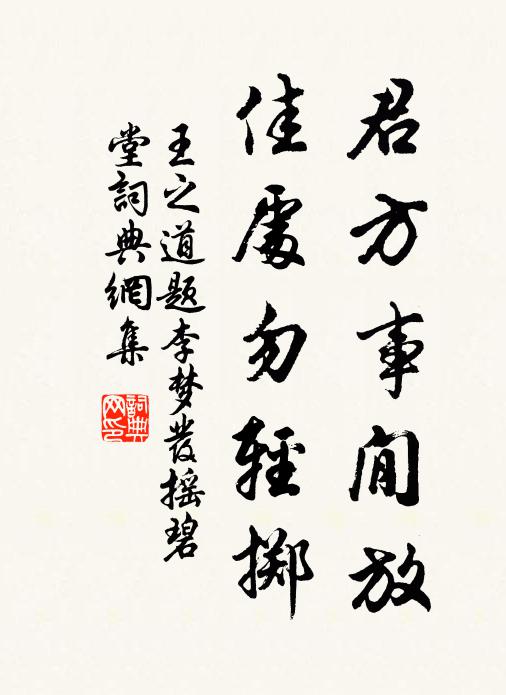 君方事閒放
佳處勿輕擲
王之道題李梦發摇碧
堂詞典網集
詞典网印